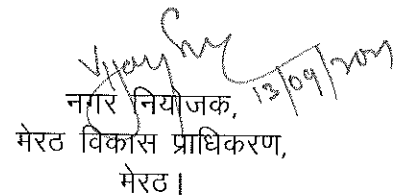 Vijay
13/09/2021
नगर नियोजक,
मेरठ विकास प्राधिकरण,
मेरठ।